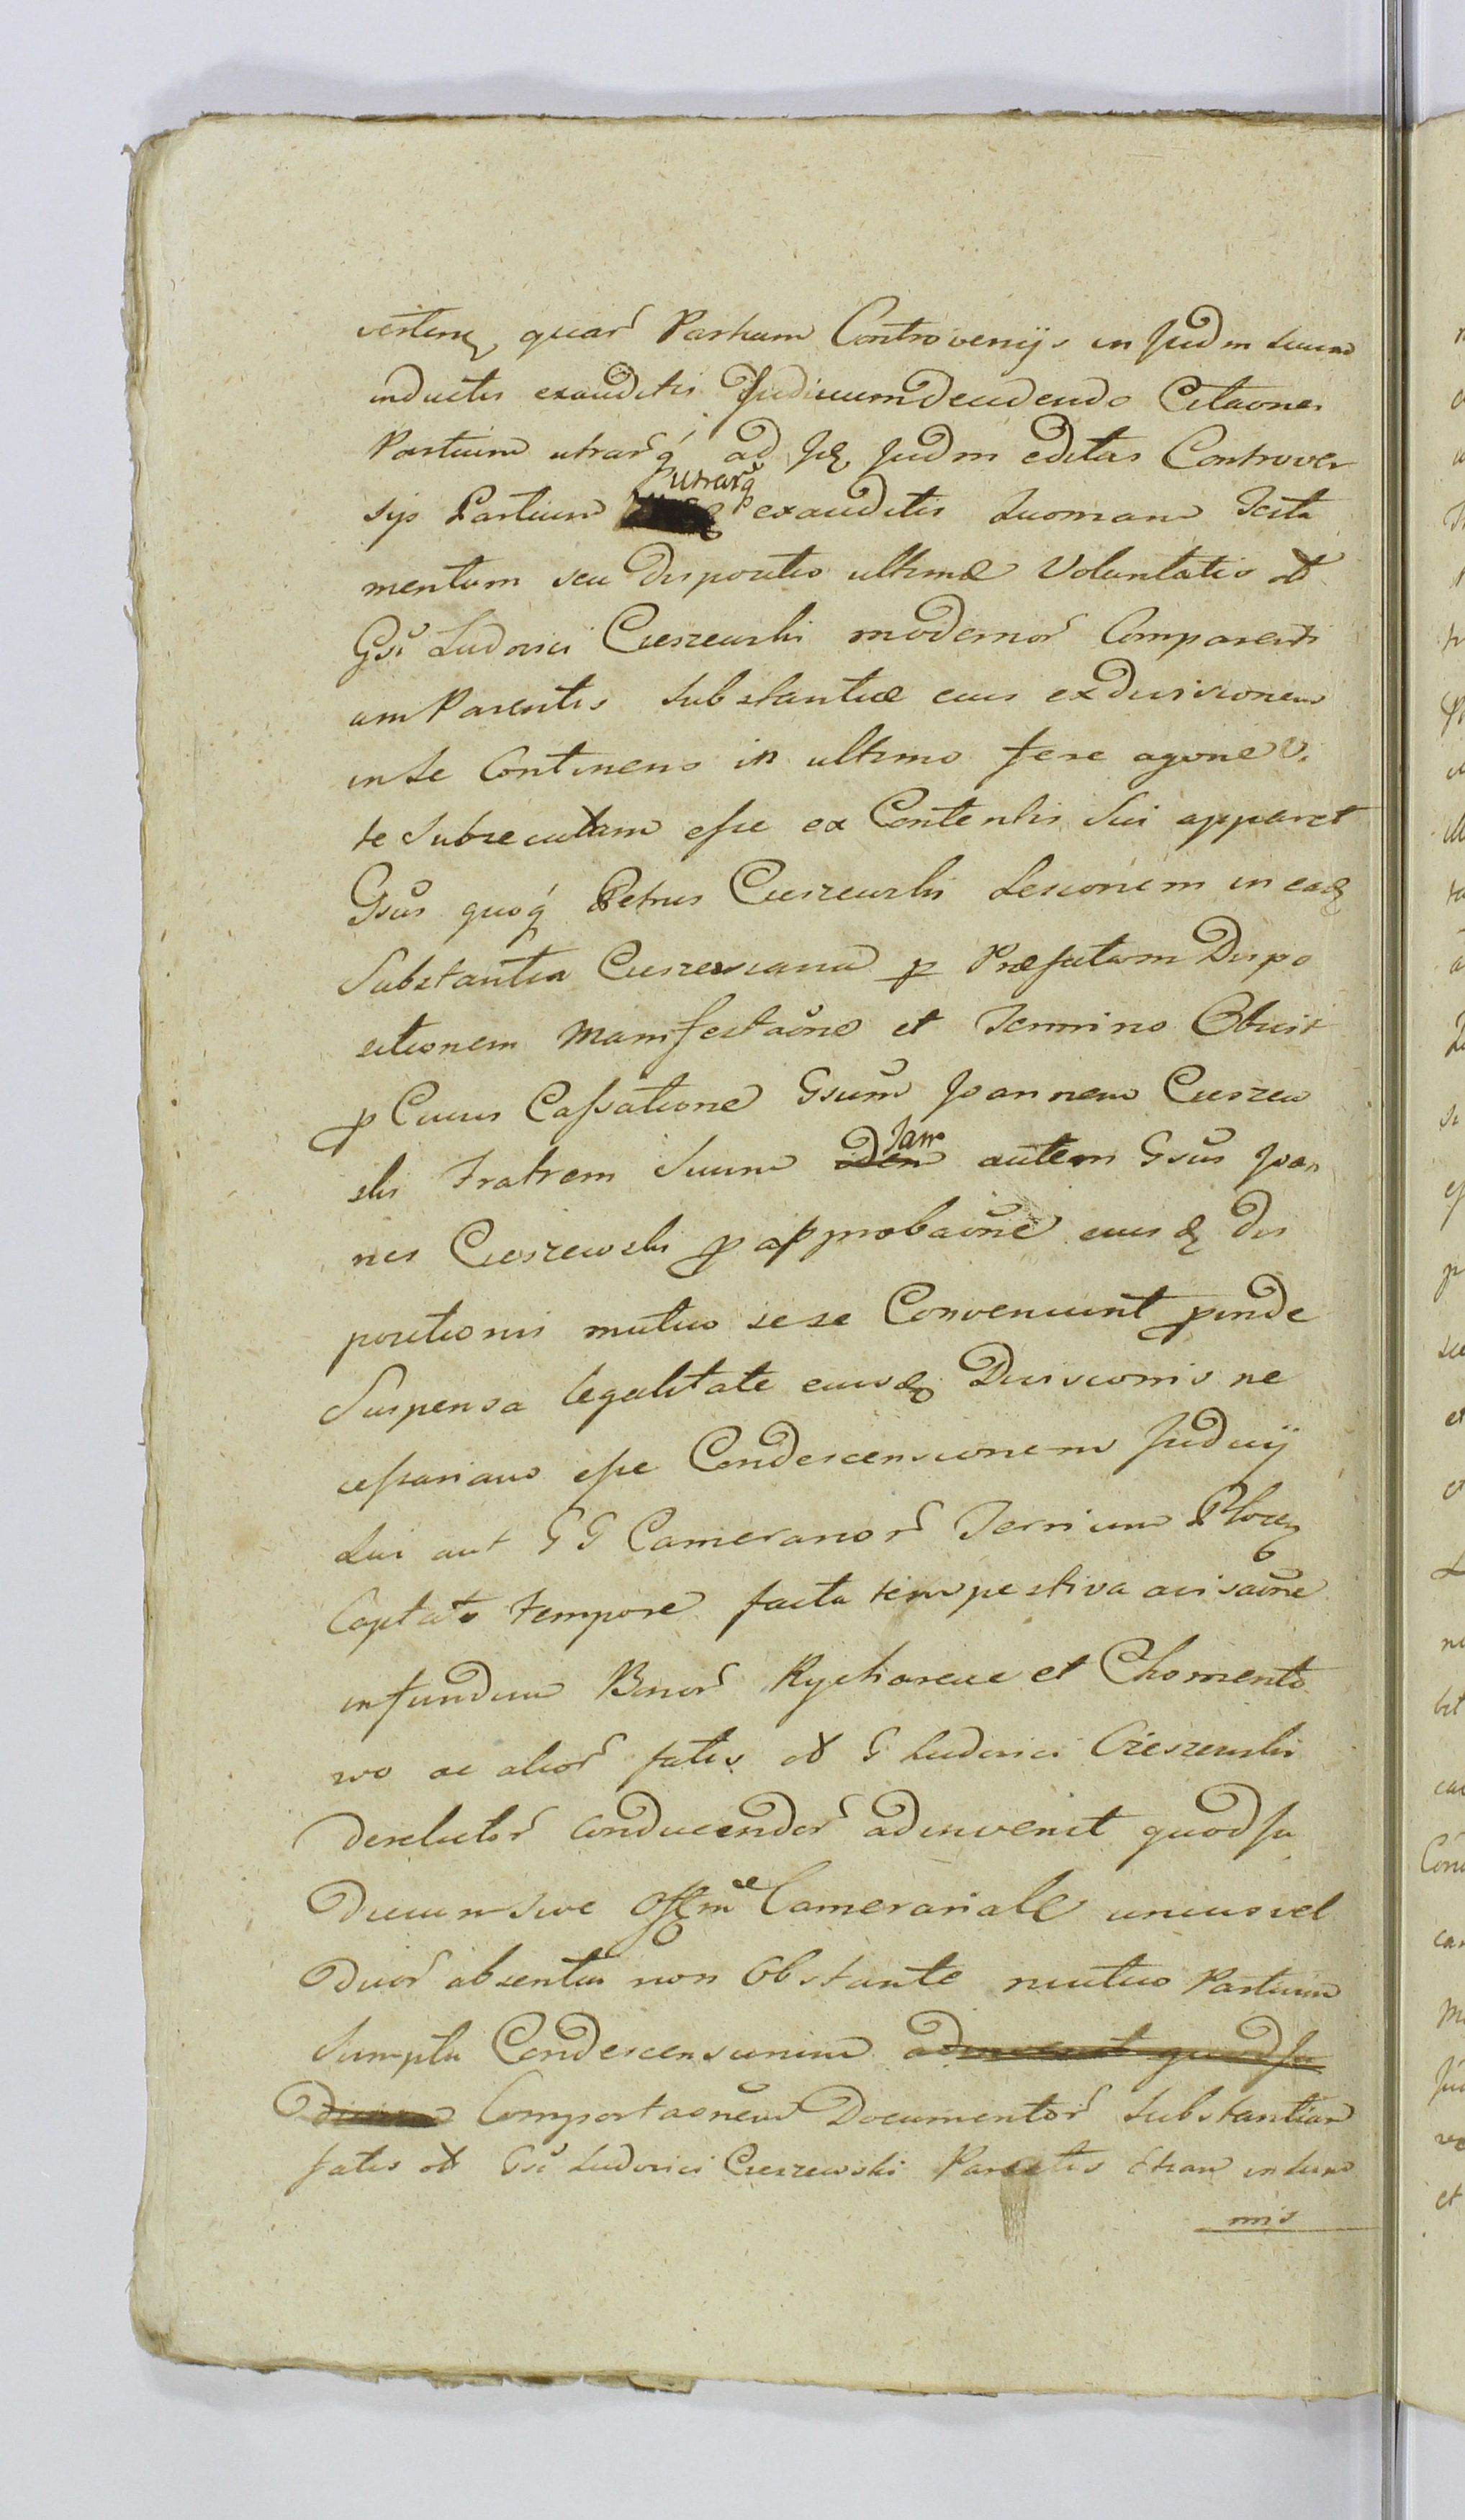 quar Partium Controversijs in Judm suum
inductis exauditis Judicium decidendo Citaones
Partium utrarq ad Judm editas Controver
sijs Partium utrarq exauditis Quoniam Testa
mentum seu Dispositio ultimæ Voluntatis
Gsi Ludovici Cieszewski modernor Comparenti
um Parentis Substantiæ eius exdivisionem
in se Continens in ultimo fere agone vi
te subsecutam esse ex Contentis Sui apparet
Gsus quoq Petrus Cieszewski Lesionem in ead
Substantia Cieszewsciana p Præfatam Dispo
sitionem Manifestaone et Termino Obvit
p Cuius Cassatione Gsum Joannem Cieszew
ski Fratrem Suum Jam autem Gsus Joan
nes Cieszewski p approbaone eiusd Dis
positionis mutuo sese Conveniunt pinde
Suspensa legalitate eiusd Divisionis ne
cessariam esse Condescensionem Judicij
Sui aut G G Camerarior Terrium Plocen
Captato tempore facta tempestiva avisaone
in fundum Bonor Rycharcice et Chomento
wo ac alior fatis G Ludovici Cieszewski
derelictor conducendor adinvenit quod Ju
dicium sive Offm Camerariale unius vel
duor absentia non Obstante mutuo Partium
Sumptu Condescensionem adinvenit quod Ju
dicium Comportaonem Documentor Substantiam
fatis Gsi Ludovici Cieszewski Parentis
mis